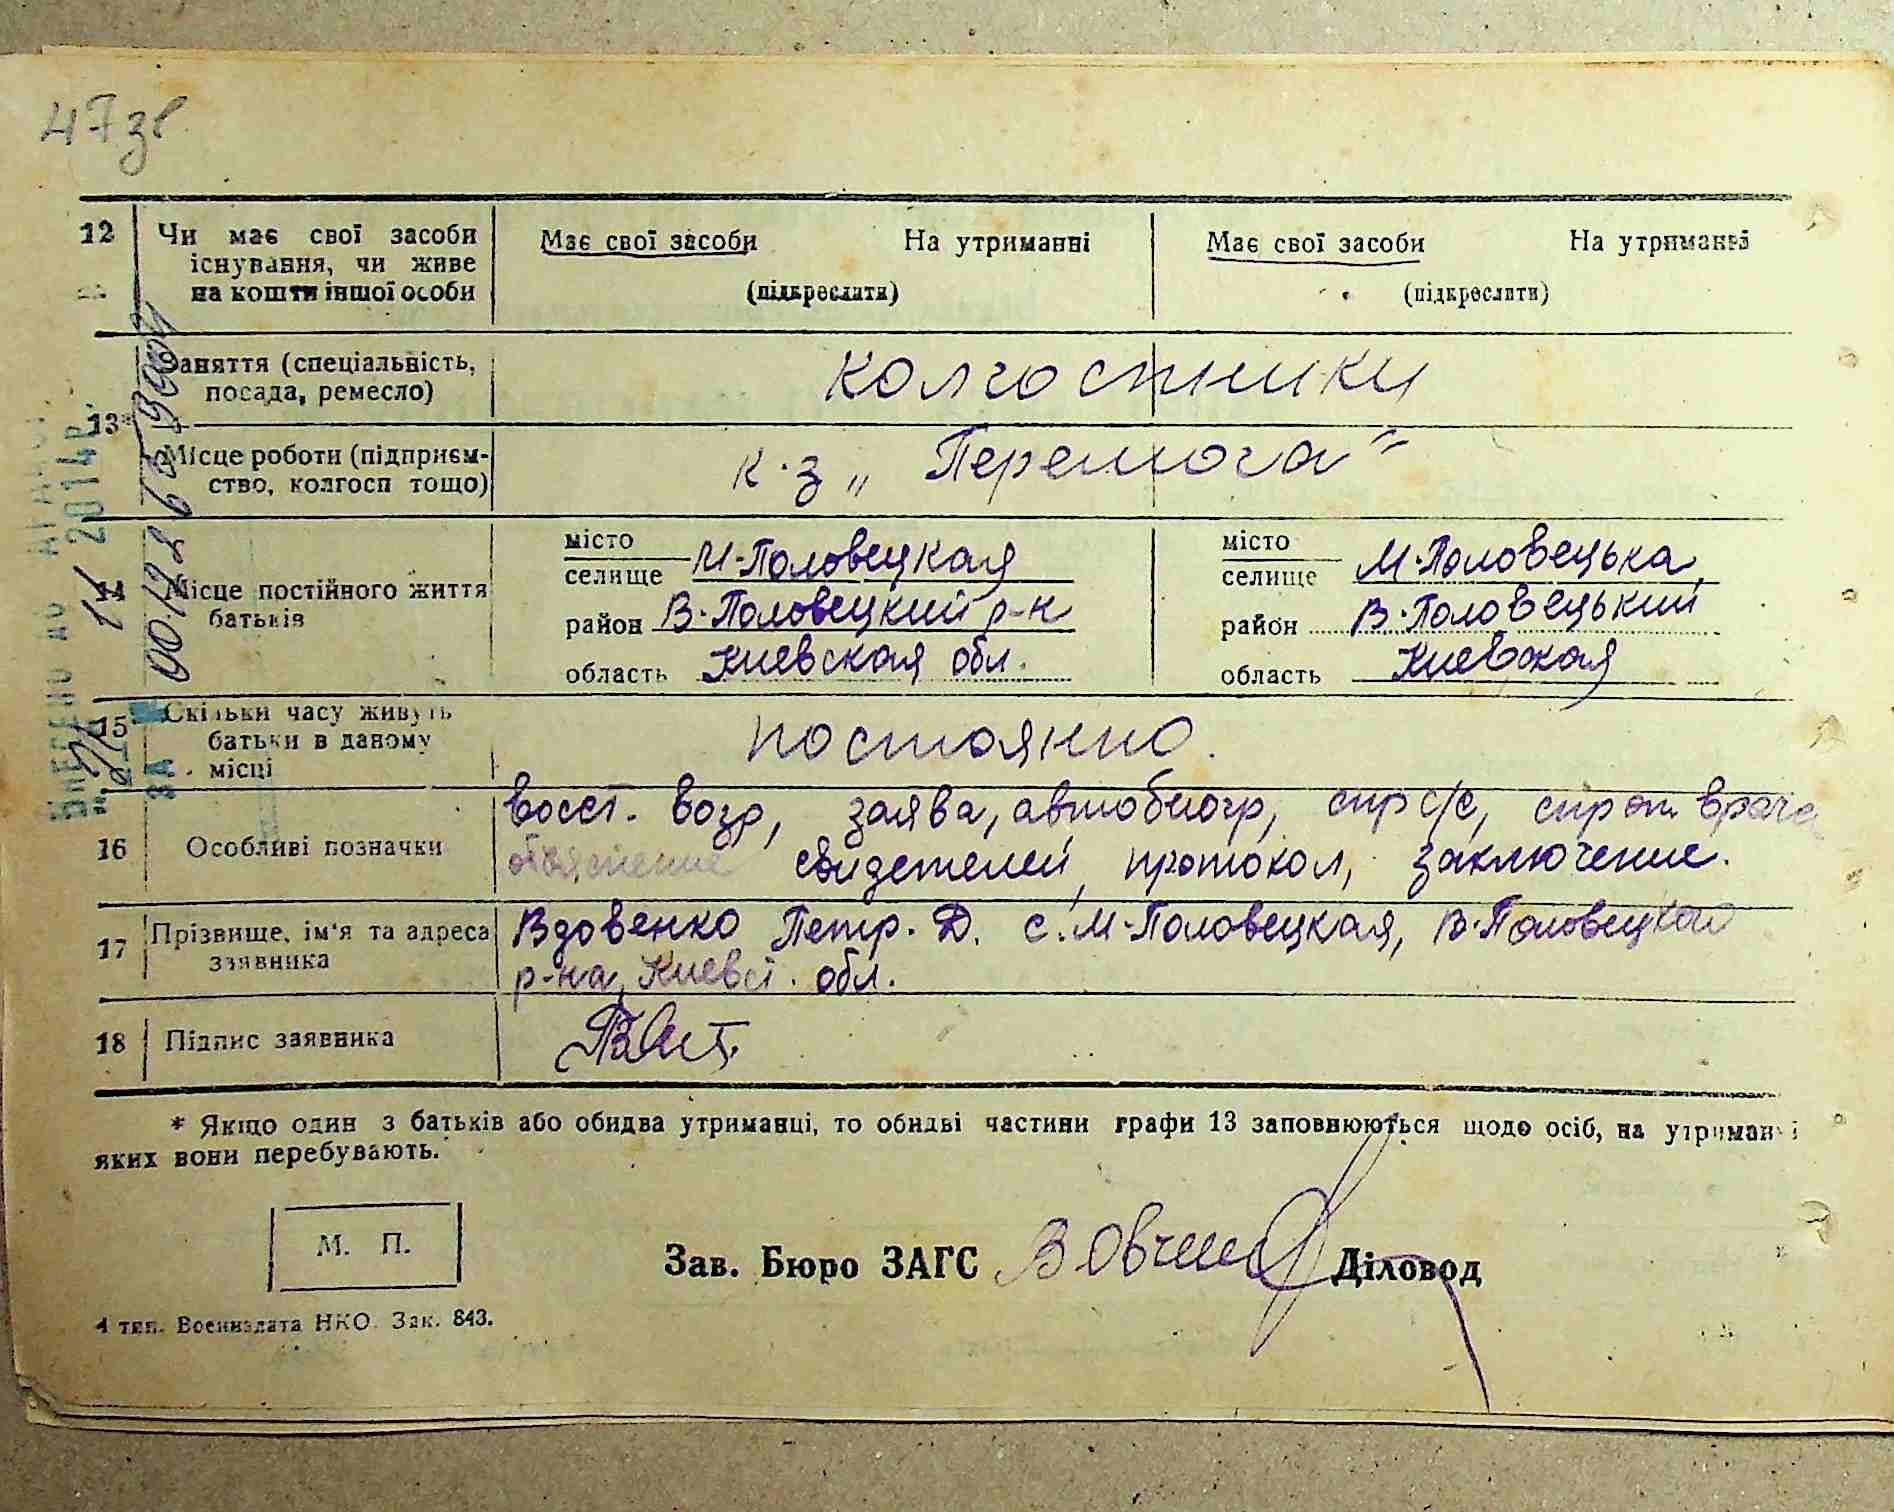 47зв
12 Чи має свої засоби Має свої засоби На утриманні Має свої засоби На утриманні
існування, чи живе
на кошти іншої особи (підкреслити) (підкреслити)
Заняття (спеціальність, колгоспники
посада, ремесло)
13*
Місце роботи (підприєм- к-з „Перемога"
ство, колгосп тощо)
місто місто
селище М-Половецкая селище М-Половецька,
14 Місце постійного життя
батьків район В-Половецкий р-н район В-Половецький
область Киевская обл. область Киевская
15 Скільки часу живуть постоянно.
батьки в даному
місці
16 Особливі позначки восст. возр, заява, автобиогр, спр с/с, спр от врача
объяснение свидетелей, протокол, заключение.
17 Прізвище, ім'я та адреса Вдовенко Петр. Д. с. М-Половецкая, В-Половецкого
заявника р-на, Киевс. обл.
18 Підпис заявника
* Якщо один з батьків або обидва утриманці, то обидві частини графи 13 заповнюються щодо осіб, на утриманні
яких вони перебувають.
М. П.
Зав. Бюро ЗАГС Діловод
4 тип. Воениздата НКО. Зак. 843.
ВНЕСЕНО ДО
2014р.
ЗА №